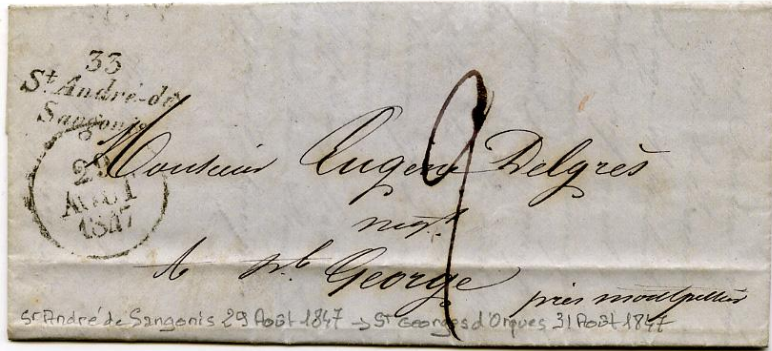 33
St André-de
Sangonis
29
AOUT
1847
Monsieur Eugene Delgrès
negt
à St George
près montpellier
St André de Sangonis 29 Août 1847 → St Georges d'Orques 31 Août 1847